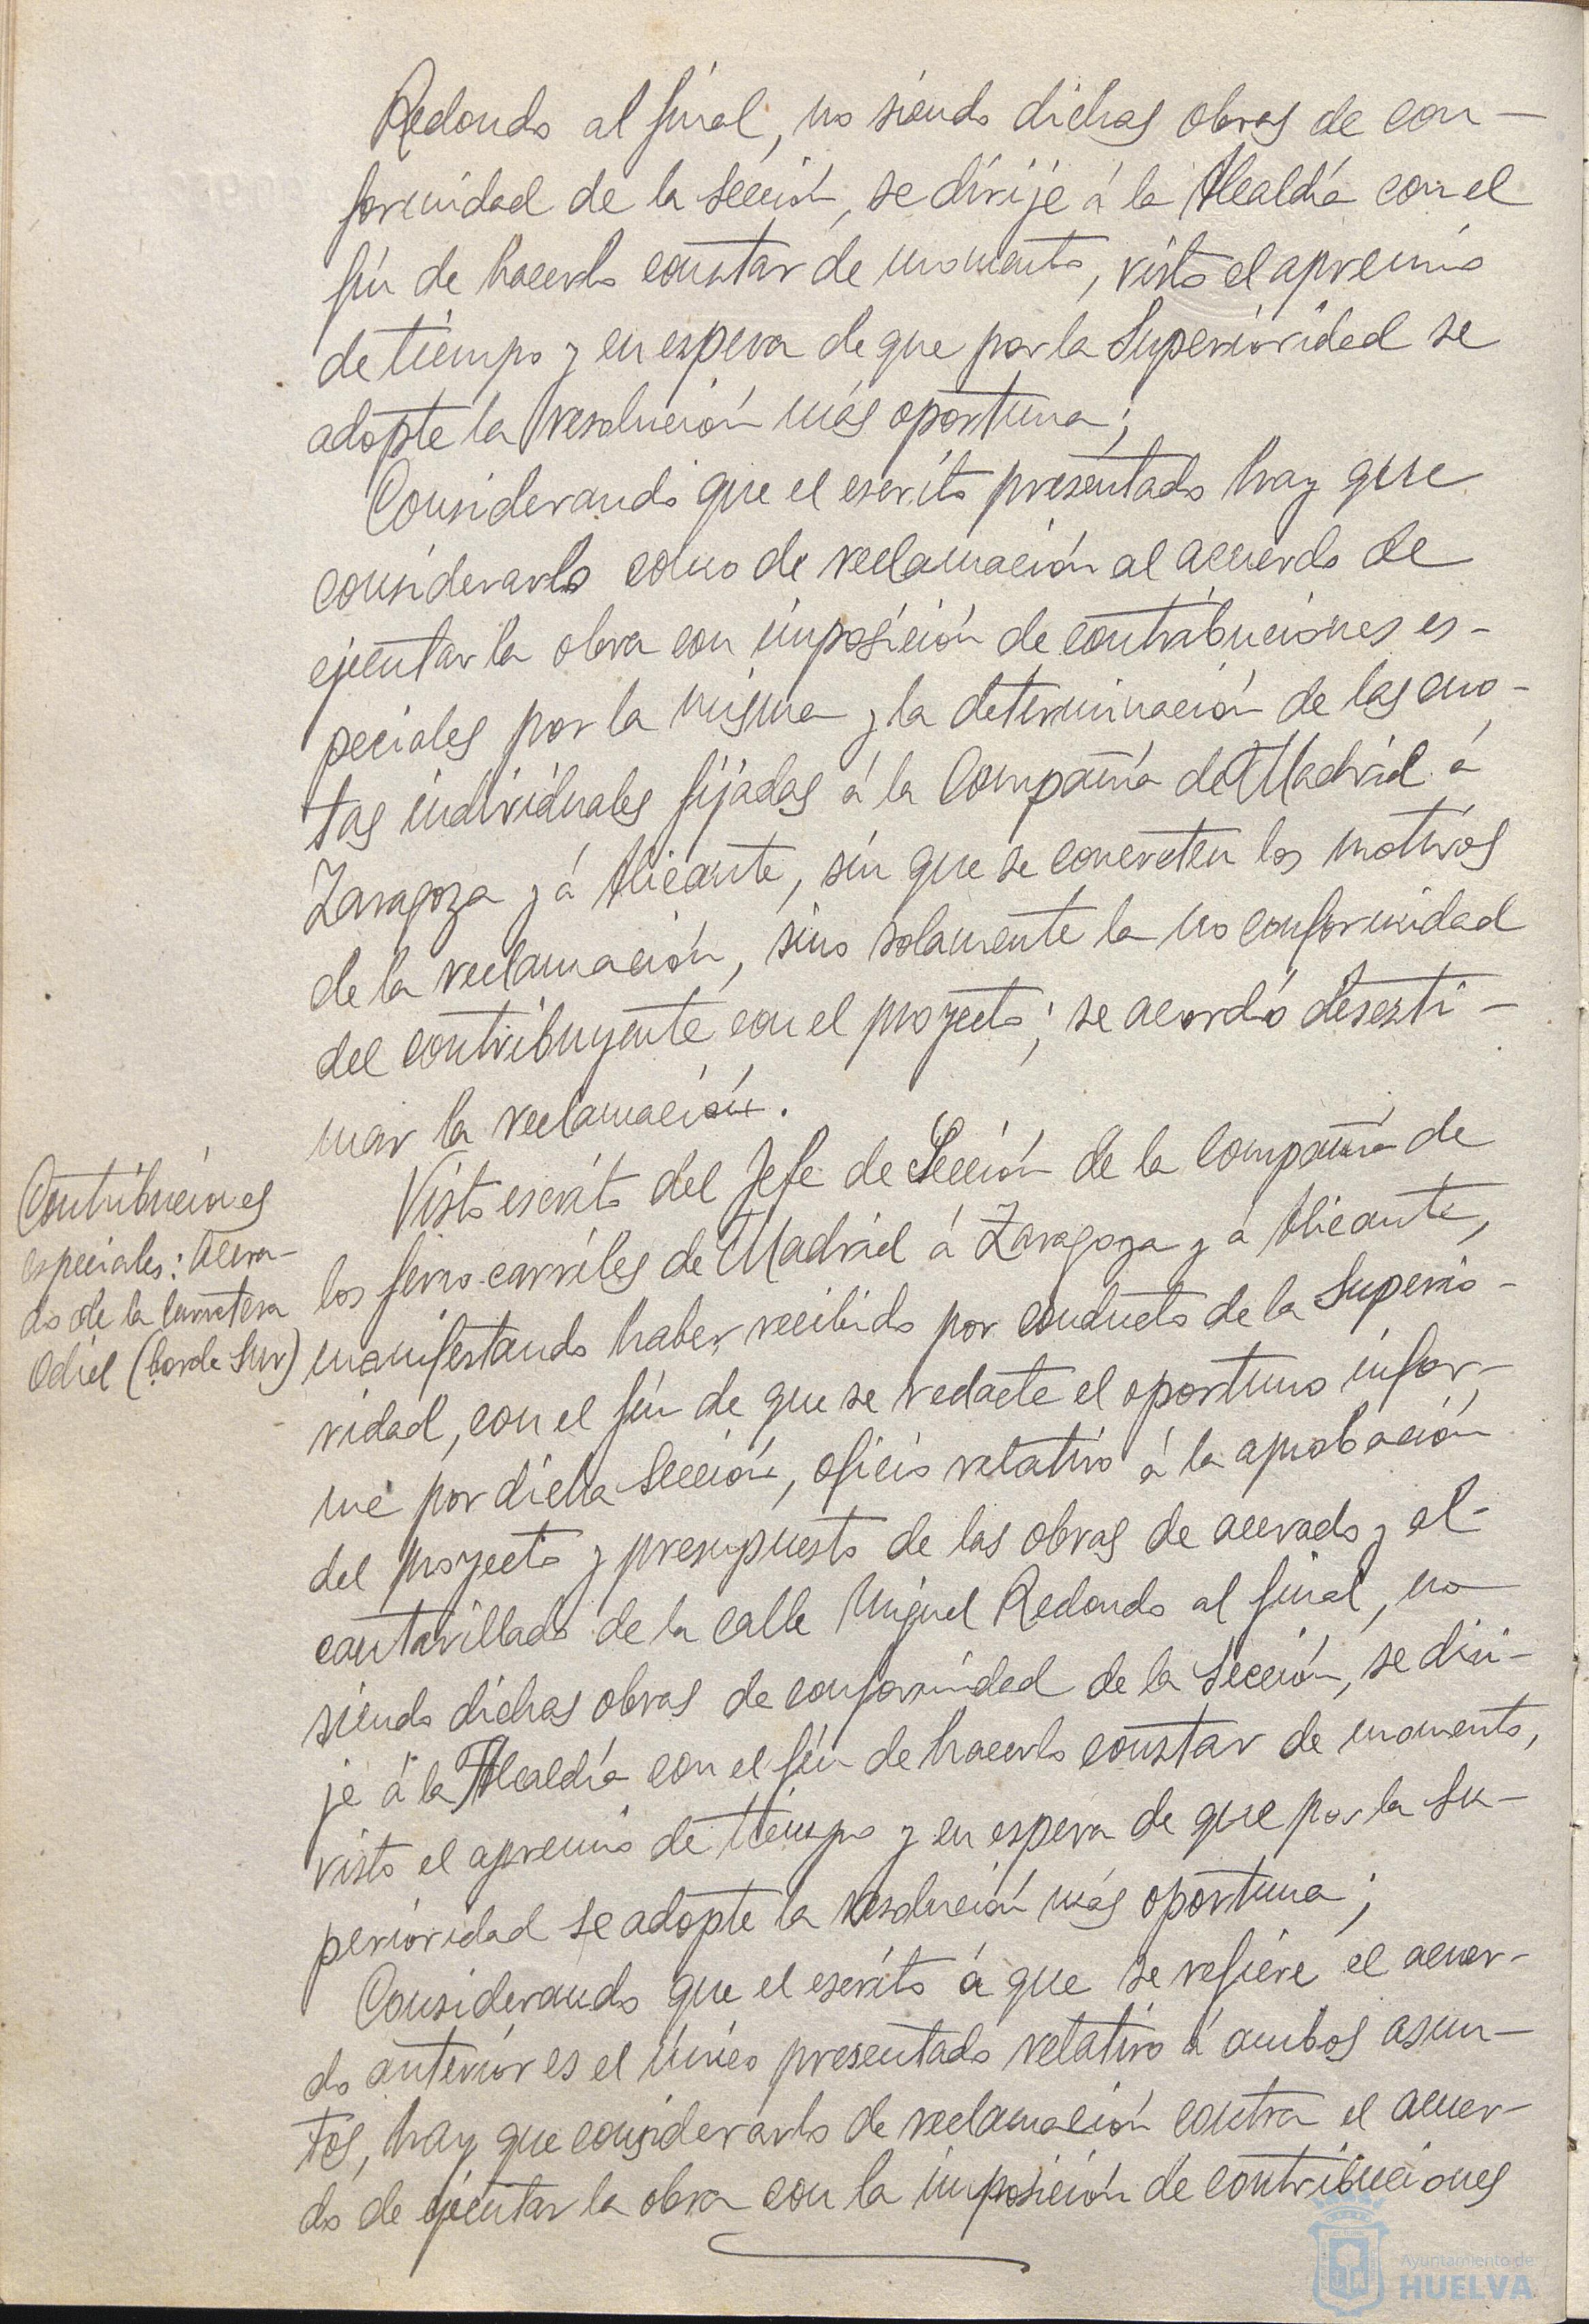 Redondo al final, no siendo dichas obras de con-
formidad de la sección, se dirije á la Alcaldía con el
fin de hacerlo constar de momento, visto el apremio
de tiempo y en espera de que por la Superioridad se
adopte la resolución más oportuna;
Considerando que el escrito presentado hay que
considerarlo como de reclamación al acuerdo de
ejecutar la obra con imposición de contribuciones es-
peciales por la misma y la determinación de las cuo-
tas individuales fijadas á la Compañía de Madrid á
Zaragoza y á Alicante, sin que se concreten los motivos
de la reclamación, sino solamente la no conformidad
del contribuyente con el proyecto; se acordó desesti-
mar la reclamación.
Contribuciones
especiales: Acera-
do de la Carretera
Odiel (borde Sur)
Visto escrito del Jefe de Sección de la Compañía de
los ferro-carriles de Madrid á Zaragoza y á Alicante,
manifestando haber recibido por conducto de la Superio-
ridad, con el fin de que se redacte el oportuno infor-
me por dicha Sección, oficio relativo á la aprobación
del proyecto y presupuesto de las obras de acerado y al-
cantarillado de la calle Miguel Redondo al final, no
siendo dichas obras de conformidad de la Sección, se diri-
je á la Alcaldía con el fin de hacerlo constar de momento,
visto el apremio de tiempo y en espera de que por la Su-
perioridad se adopte la resolución más oportuna;
Considerando que el escrito á que se refiere el acuer-
do anterior es el único presentado relativo á ambos asun-
tos, hay que considerarlo de reclamación contra el acuer-
do de ejecutar la obra con la imposición de contribuciones
Ayuntamiento de
HUELVA